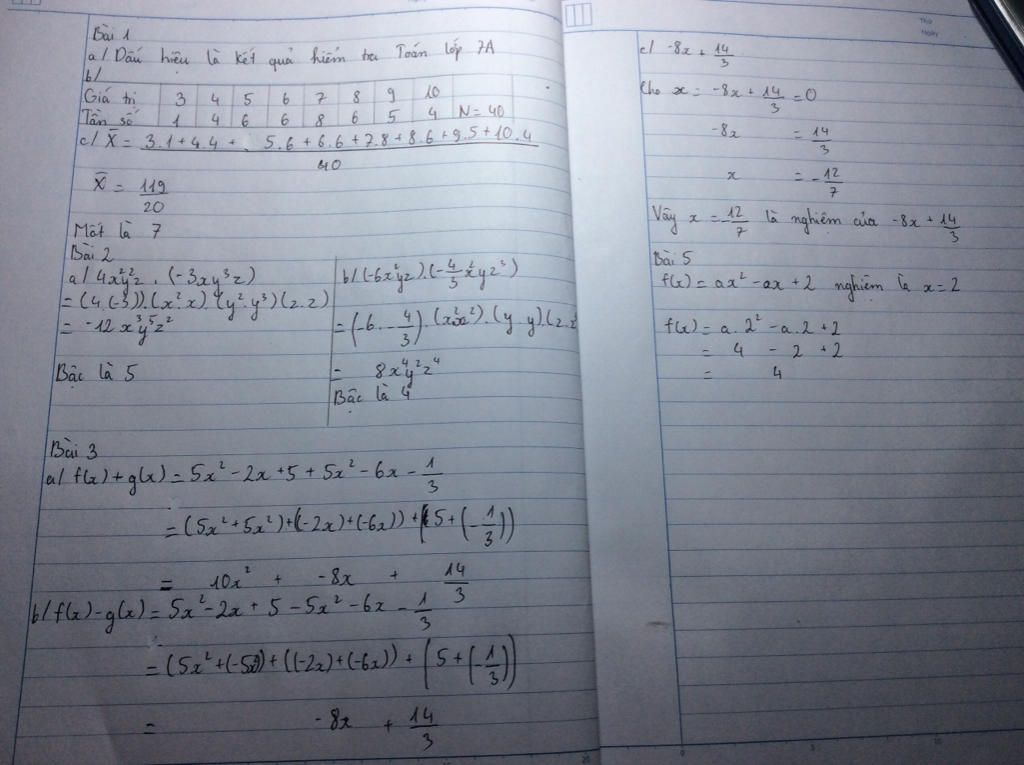 Bài 1
a/ Dấu hiệu là kết quả kiểm tra Toán lớp 7A
b/
Giá trị 3 4 5 6 7 8 9 10
Tần số 1 4 6 6 8 6 5 4 N = 40
c/ X̄ = (3.1+4.4+ 5.6+6.6+7.8+8.6+9.5+10.4)/40
X̄ = 119/20
Mốt là 7
Bài 2
a/ 4x²y²z . (-3xy³z)
= (4.(-3)).(x².x).(y².y³)(z.z)
= -12x³y⁵z²
Bậc là 5
b/ (-6x²yz).(-4/3x²yz³)
= (-6.-4/3).(x²x²).(y.y).(z.z
= 8x⁴y²z⁴
Bậc là 4
Bài 3
a/ f(x)+g(x) = 5x²-2x+5+5x²-6x-1/3
= (5x²+5x²)+(-2x)+(-6x))+(5+(-1/3))
= 10x² + -8x + 14/3
b/ f(x)-g(x) = 5x²-2x+5-5x²-6x-1/3
= (5x²+(-5x²)+((-2x)+(-6x))+(5+(-1/3))
= -8x + 14/3
c/ -8x+14/3
Cho x = -8x+14/3=0
-8x = 14/3
x = -12/7
Vậy x = -12/7 là nghiệm của -8x+14/3
Bài 5
f(x) = ax²-ax+2 nghiệm là x=2
f(x) = a.2²-a.2+2
= 4 - 2 +2
= 4